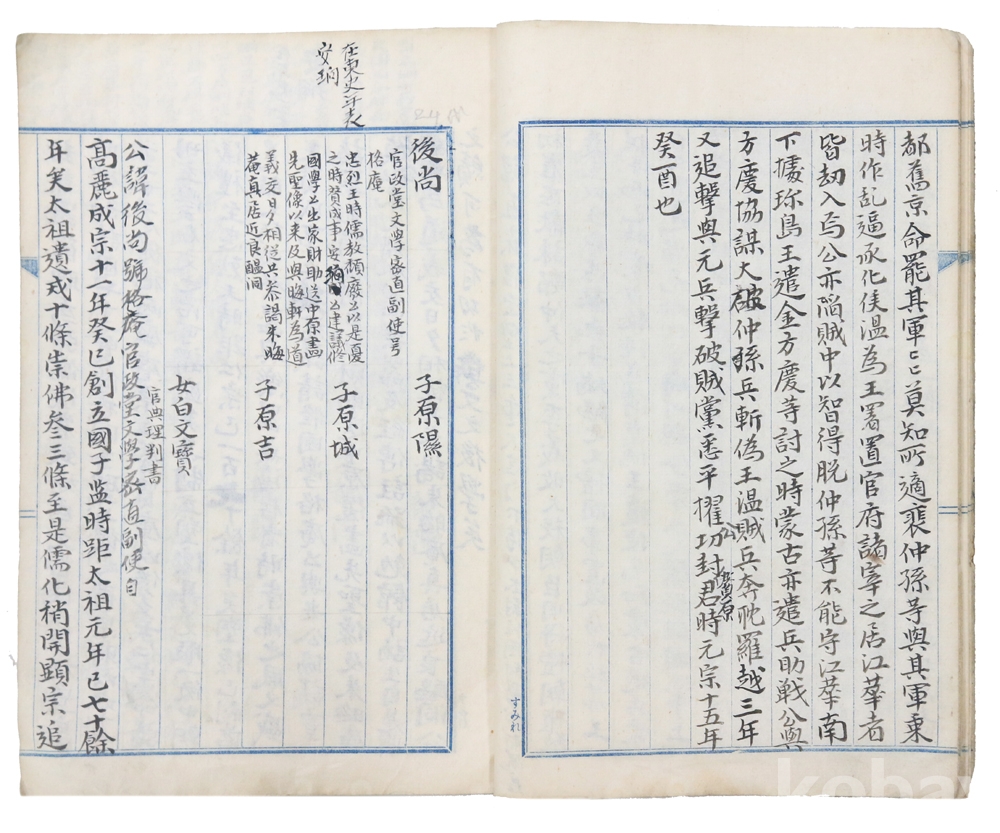 都舊京命罷其軍〻莫知所適裵仲孫等與其軍乘
時作乱逼承化侯溫為王署置官府諸宰之居江華者
皆劫入焉公亦陷賊中以智得脫仲孫等不能守江華南
下據珎島王遣金方慶等討之時蒙古亦遣兵助戦公與
方慶協謀大破仲孫兵斬偽王溫賊兵奔耽羅越三年
又追擊與元兵擊破賊黨悉平擢公切封原君時元宗十五年
癸酉也
すみれ
在東史年表
安珦
後尚
官政堂文學密直副使号
格庵
忠烈王時儒教頹廢公以是憂
之時賛成事安珦公建議修
國學公出家財助送中原畫
先聖像以来及與晦軒為道
義交日夕相從共参謁朱晦
菴真居近良醞洞
子原隰
子原城
子原吉
女白文寶
官典理判書
公諱後尚號格庵官政堂文學密直副使自
高麗成宗十一年癸巳創立國子监時距太祖元年已七十餘
年矣太祖遺戒十條崇佛叅三條至是儒化稍開顯宗追
kobay